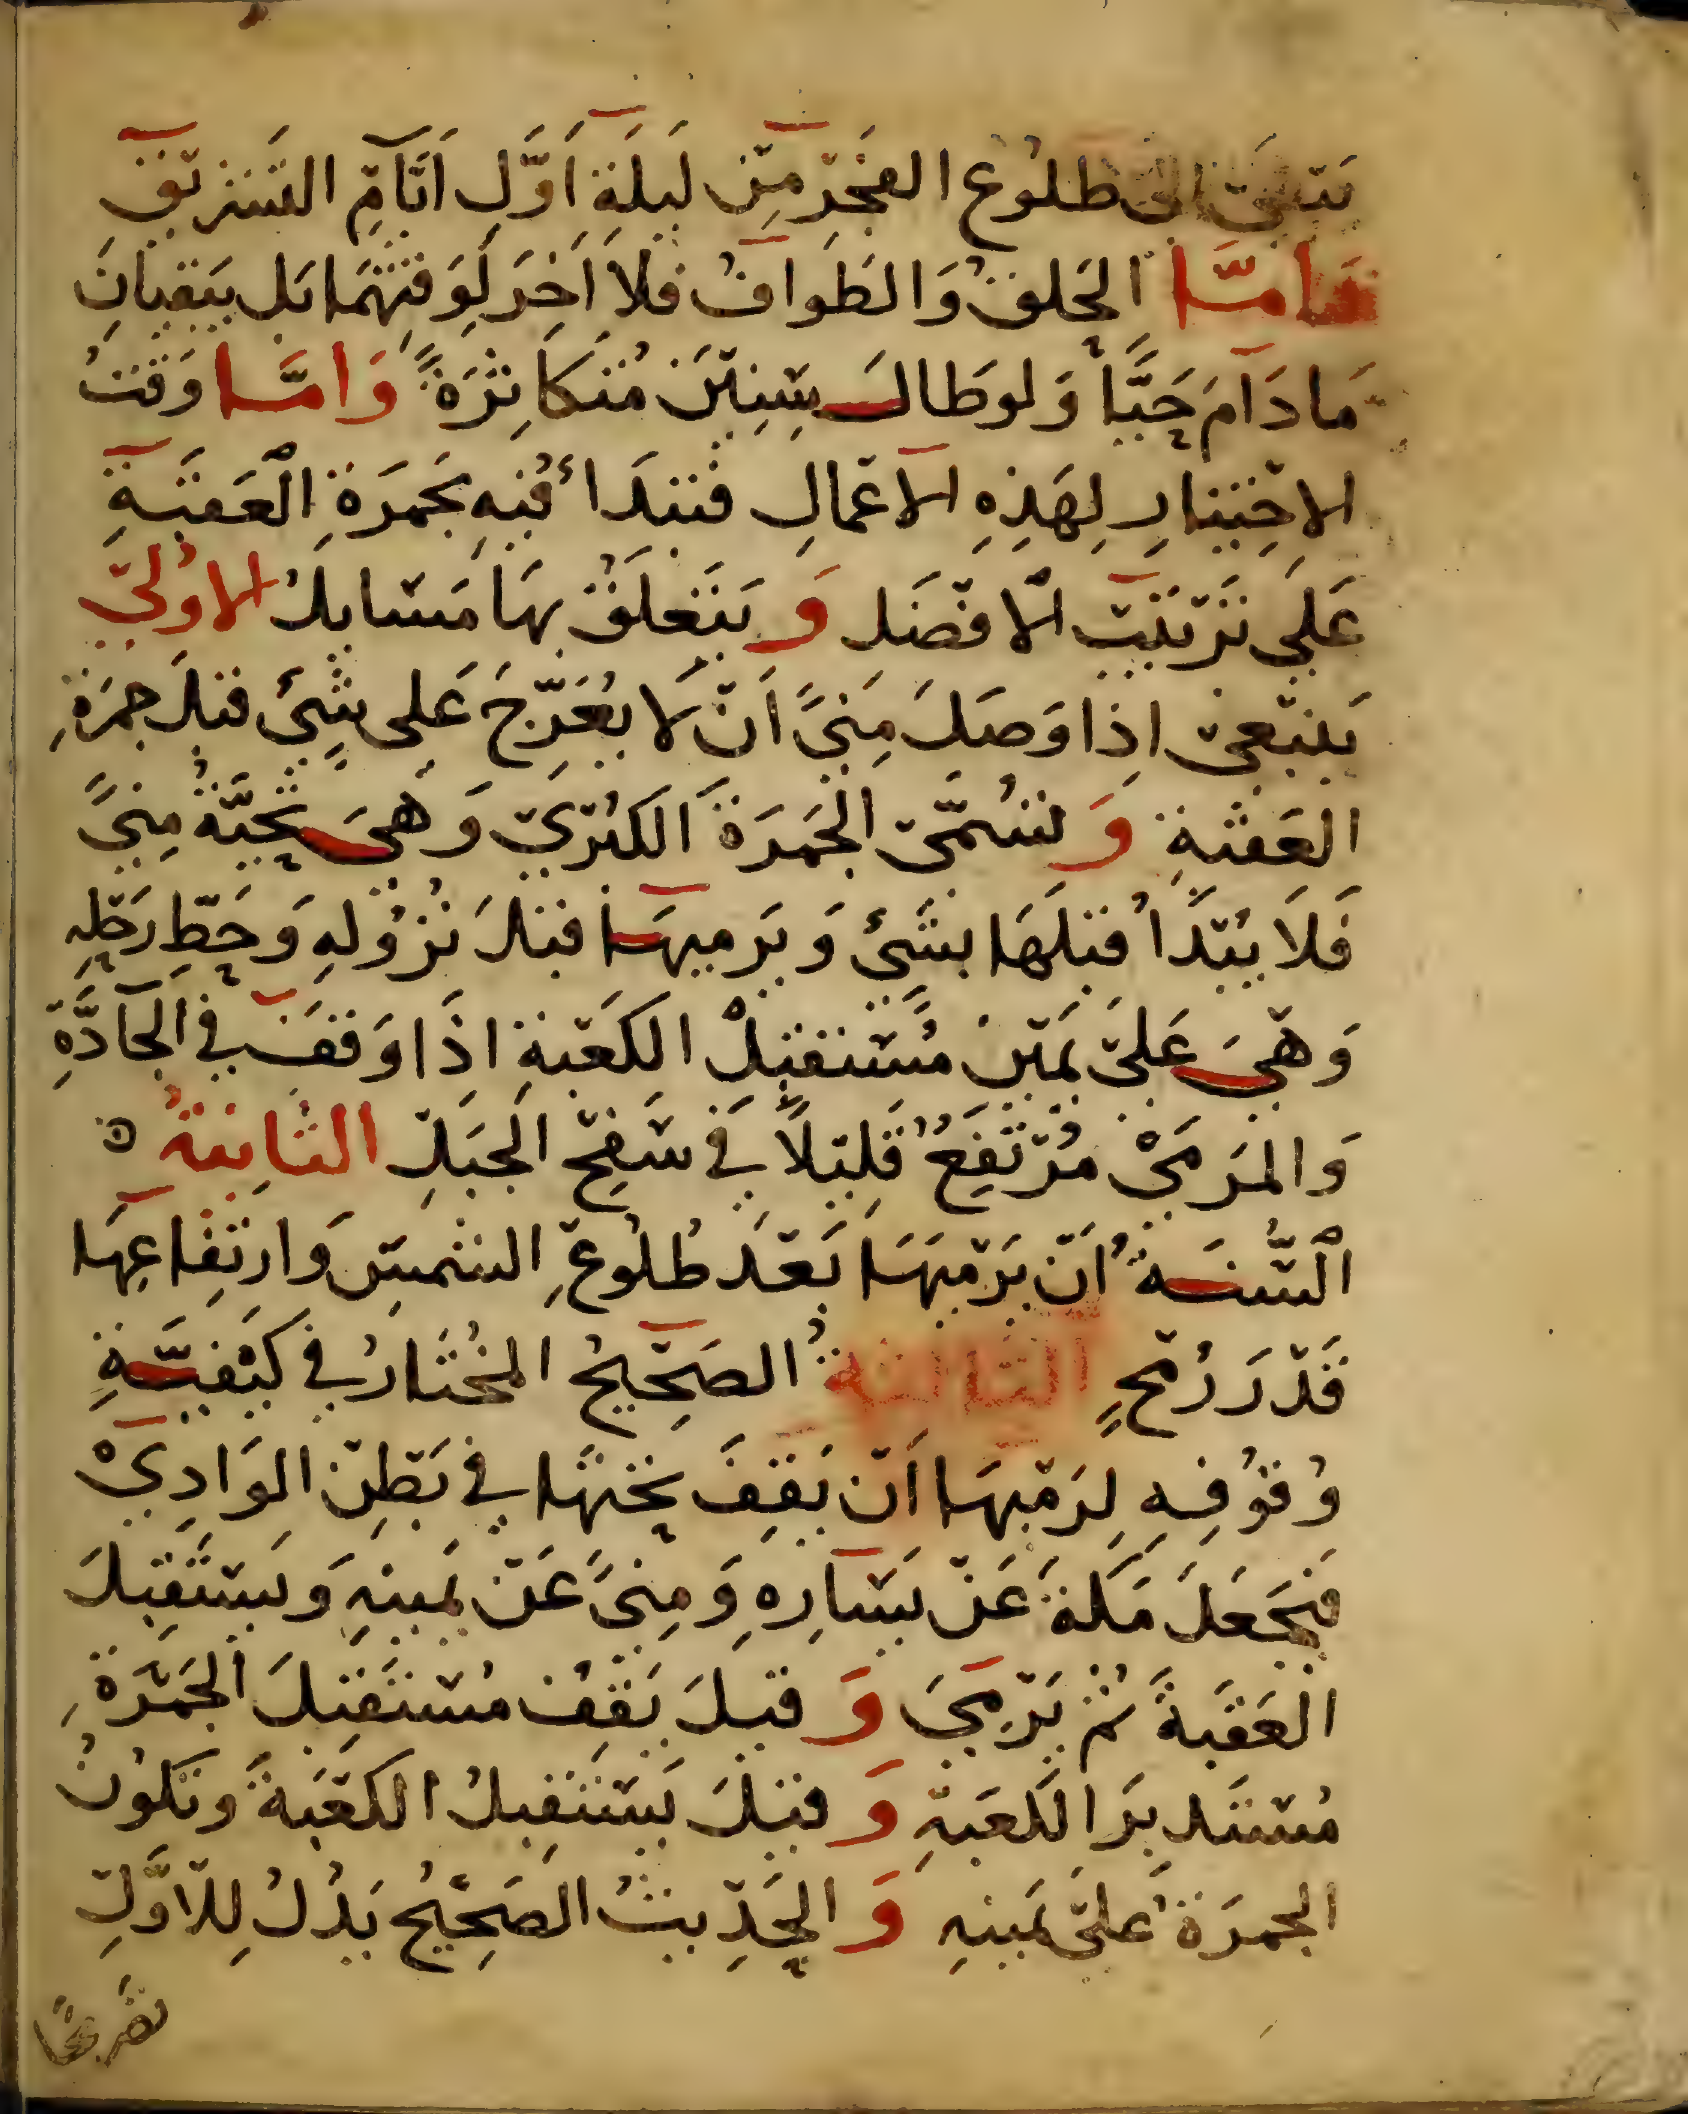 يَبْقَىٰ اِلىٰ طلُوُع الفَجْرِ مِنْ لَيلَةِ اَوَّلِ اَيَّامِ التَشْرِيْقِ
فَامَّا الحَلقُ وَالطَوافُ فلاَ اَخِرَ لِوَقتِهِمَا بَل يَبْقيانَ
مَا دَامَ حَيَّاً وَلوطَالَ سِنِيْنَ مُتَكَاثِرَةً وَامَّا وَقتُ
الاخْتِيَارِ لِهَذِهِ الاَعْمَالِ فيَبتَدَأُ فيْهِ بجَمرَةِ الْعَقَبَةِ
عَلَى تَرْتيْبِ الافْضَل وَيَتَعَلَقُ بهَا مَسَايلُ الاوُلىٰ
يَنْبَغِيْ اِذا وَصَلَ مِنىً اَنْ لا يُعَرِّجَ عَلى شَئٍ قبلَ جمرَةِ
العَقَبَةِ وَتسُمَّىٰ الجَمرَةَ الكبْرَىٰ وَهْيَ تَحِيَّةُ مِنىً
فَلاَ يَبْدَأُ قبْلَهَا بشَئٍ وَيَرميهَا قبلَ نُزُوُلهِ وَحَطِّ رَحْلِهِ
وَهْيَ عَلىٰ يَميْنِ مُسْتقبِلْ الكَعْبَةِ اذَا وَقفَ في الجَادَّةِ
وَالمَرمَىْ مُرْتَفِعٌ قَلِيْلاً في سَفحِ الجَبَلِ الثانِيَةُ
الْسُّنَةُ اَنْ يَرْميَهَا بَعْدَ طُلُوُعِ الشمسِ وَارتِفاعِهَا
قَدْرَ رُمْحٍ الثالثَةُ الصَحِيْحُ المُختَارُ في كَيْفيَّةِ
وُقوُفِهِ لِرَمْيهَا اَنْ يَقِفَ تَحْتهَا في بَطنِ الوَادِيْ
فيَجعَلَ مَكةَ عَنْ يَسَارِهِ وَمِنىً عَنْ يَمينِهِ وَيَستَقبِلَ
العَقَبَةَ ثم يَرْمِيَ وَقيلَ يَقِفُ مُستَقبِلَ الجَمْرَةِ
مُستَدبِرَ الكَعبَةِ وَقيْلَ يَستَقبِلُ الكَعْبَةَ وَتكُوُنُ
الجمرَةُ عَلىٰ يَمينهِ وَالحَدِيثُ الصَحِيْحُ يَدُلُ لِلاَوَّلِ
تصَريحًا